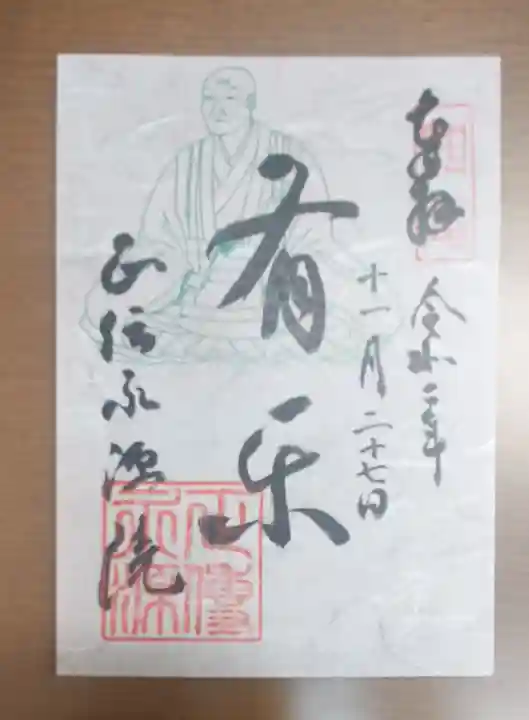 奉拝
令和二年
十一月二十七日
有楽
正伝永源院